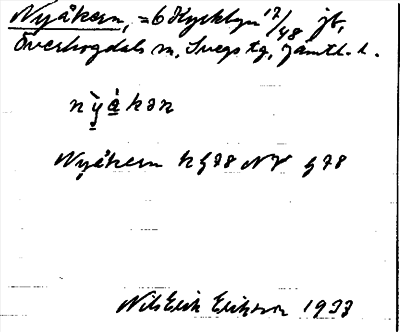 Nyåkern, = 6 Kyrkbyn 17/48 jb,
Överhogdals sn, Svegs tg, Jämtl. l.
nỳ̠å̠kən
Nyåkern hg78 NV g78
Nils Erik Eriksson 1933